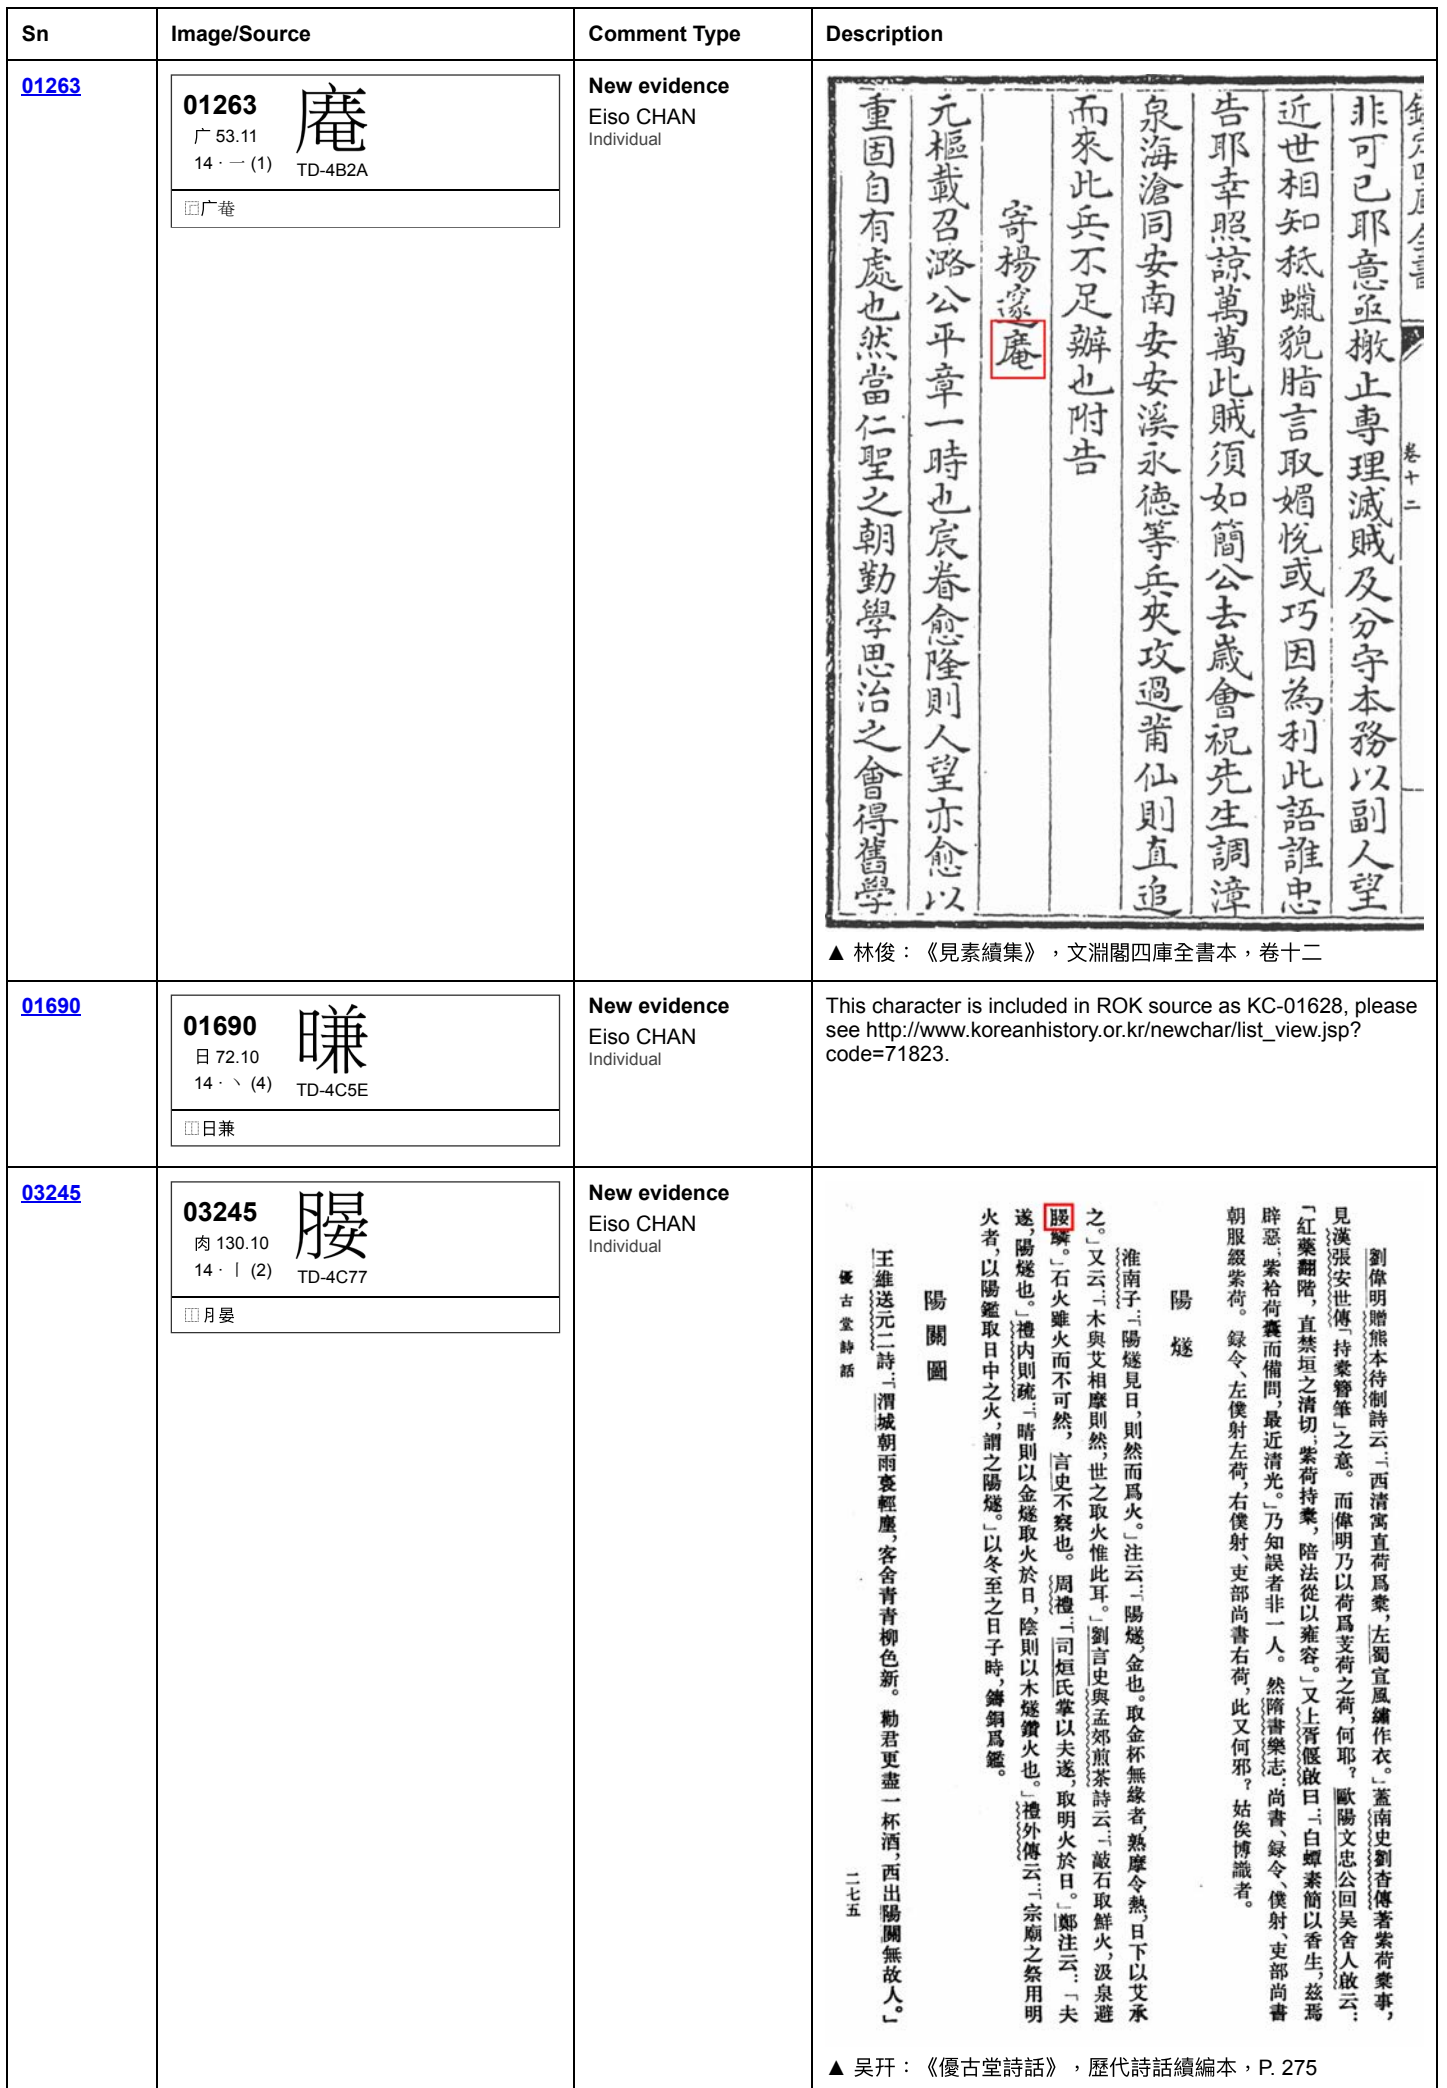 Sn Image/Source Comment Type Description
01263
01263
广 53.11
14 · 一 (1)
TD-4B2A
⿸广菴
New evidence
Eiso CHAN
Individual
卷十二
非可已耶意亟撤止専理滅賊及分守本務以副人望
近世相知秪蠟貌脂言取媚恱或巧因為利此語誰忠
告耶幸照諒萬萬此賊須如簡公去嵗會祝先生調漳
泉海滄同安南安安溪永徳等兵夾攻過莆仙則直追
而來此兵不足辦也附告
寄楊邃庵
元樞載召潞公平章一時也宸眷愈隆則人望亦愈以
重固自有處也然當仁聖之朝勤學思治之會得舊學
▲ 林俊：《見素續集》，文淵閣四庫全書本，卷十二
01690
01690
日 72.10
14 · 丶 (4)
TD-4C5E
⿰日兼
New evidence
Eiso CHAN
Individual
This character is included in ROK source as KC-01628, please
see http://www.koreanhistory.or.kr/newchar/list_view.jsp?
code=71823.
03245
03245
肉 130.10
14 · 丨 (2)
TD-4C77
⿰月晏
New evidence
Eiso CHAN
Individual
劉偉明贈熊本待制詩云：「西清寓直荷爲橐，左蜀宜風繡作衣。」蓋南史劉杳傳著紫荷橐事，
見漢張安世傳「持橐簪筆」之意。而偉明乃以荷爲芰荷之荷，何耶？歐陽文忠公回吴舍人啟云：
「紅藥翻階，直禁垣之清切；紫荷持橐，陪法從以雍容。」又上胥偃啟曰：「白蟫素簡以香生，兹焉
辟惡；紫袷荷囊而備問，最近清光。」乃知誤者非一人。然隋書樂志：尚書、録令、僕射、吏部尚書
朝服綴紫荷。録令、左僕射左荷，右僕射、吏部尚書右荷，此又何邪？姑俟博識者。
陽燧
淮南子：「陽燧見日，則然而爲火。」注云：「陽燧，金也。取金杯無緣者，熟摩令熱，日下以艾承
之。」又云：「木與艾相摩則然，世之取火惟此耳。」劉言史與孟郊煎茶詩云：「敲石取鮮火，汲泉避
鱗。」石火雖火而不可然，言史不察也。周禮：「司烜氏掌以夫遂，取明火於日。」鄭注云：「夫
遂，陽燧也。」禮内則疏：「晴則以金燧取火於日，陰則以木燧鑽火也。」禮外傳云：「宗廟之祭用明
火者，以陽鑑取日中之火，謂之陽燧。」以冬至之日子時，鑄銅爲鑑。
陽關圖
王維送元二詩：「渭城朝雨裛輕塵，客舍青青柳色新。勸君更盡一杯酒，西出陽關無故人。」
優古堂詩話
二七五
▲ 吴幵：《優古堂詩話》，歷代詩話續編本，P. 275